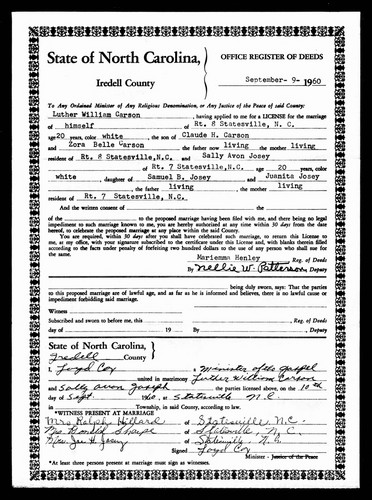 State of North Carolina,
Iredell County
OFFICE REGISTER OF DEEDS
September-9-1960
To Any Ordained Minister of Any Religious Denomination, or Any Justice of the Peace of said County:
Luther William Carson, having applied to me for a LICENSE for the marriage
of himself of Rt. 8 Statesville, N. C.
age 20 years, color white, the son of Claude H. Carson
and Zora Belle Carson the father now living the mother living
resident of Rt. 8 Statesville,N.C. and Sally Avon Josey
of Rt. 7 Statesville,N.C. age 20 years, color
white, daughter of Samuel B. Josey and Juanita Josey
, the father living, the mother living
resident of Rt. 7 Statesville, N.C.
And the written consent of the
of the to the proposed marriage having been filed with me, and there being no legal
impediment to such marriage known to me, you are hereby authorized at any time within 30 days from the date
hereof, to celebrate the proposed marriage at any place within the said County.
You are required, within 30 days after you shall have celebrated such marriage, to return this License to
me, at my office, with your signature subscribed to the certificate under this License, and with blanks therein filled
according to the facts under penalty of forfeiting two hundred dollars to the use of any person who shall sue for
the same.
Mariemma Henley Reg. of Deeds
By Nellie W. Patterson Deputy
being duly sworn, say: That the parties
to this proposed marriage are of lawful age, and as far as he is informed and believes, there is no lawful cause or
impediment forbidding said marriage.
Witness
Subscribed and sworn to before me, this
day of 19
Reg. of Deeds
By Deputy
State of North Carolina,
Iredell County
I, Loyd Coy a Minister of the Gospel
united in matrimony Luther William Carson
and Sally Avon Joseph the parties licensed above, on the 10th
day of Sept. 1960, at Statesville N.C.
in Township, in said County, according to law.
*WITNESS PRESENT AT MARRIAGE
Mrs Ralph Hilland of Statesville N.C.
Mrs Ronald Sharpe of Statesville, N.C.
Mrs. Joe H. Josey of Statesville, N.C.
Signed Loyd Coy
Minister - Justice of the Peace
*At least three persons present at marriage must sign as witnesses.